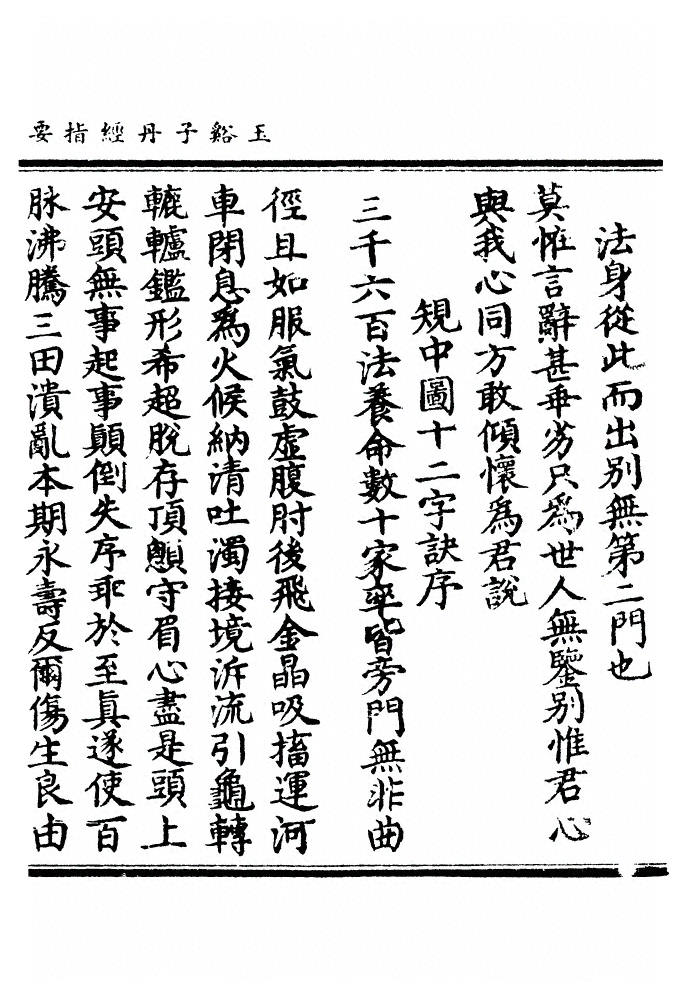 玉谿子丹經指要
法身從此而出別無第二門也
莫怪言辭甚乖劣只為世人無鑒別惟君心
與我心同方敢傾懷為君說
規中圖十二字訣序
三千六百法養命數十家率皆旁門無非曲
徑且如服氣鼓虛腹肘後飛金晶吸搐運河
車閉息爲火候納清吐濁接境泝流引龜轉
轆轤鑑形希超脫存頂顖守眉心盡是頭上
安頭無事起事顛倒失序乖於至真遂使百
脉沸騰三田潰亂本期永壽反爾傷生良由